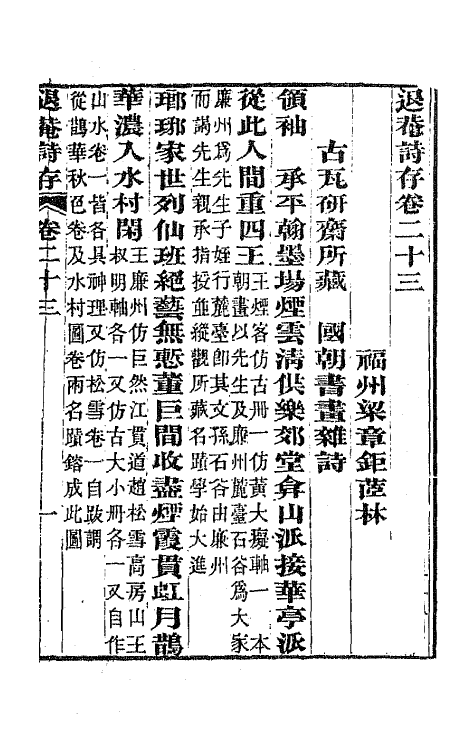 退菴詩存卷二十三
福州梁章鉅茝林
古瓦研齋所藏　國朝書畫雜詩
領袖　承平翰墨場煙雲淸供樂郊堂倉山派接華亭派
從此人間重四王王煙客仿古冊一仿黃大癡軸一　本
朝畫以先生及廉州麓臺石谷爲大家
廉州爲先生子姪行麓臺卽其文孫石谷由廉州
而謁先生親承指授並縱觀所藏名蹟學始大進
瑯琊家世列仙班絕藝無慙董巨間收盡煙霞貫虹月鵲
華濃入水村閑王廉州仿巨然江貫道趙松雪高房山王
叔明軸各一又仿古大小册各一又自作
山水卷一皆各具神理又仿松雪卷一自跋謂
從鵲華秋色卷及水村圖卷兩名蹟鎔成此圖
退菴詩存　卷二十三　一